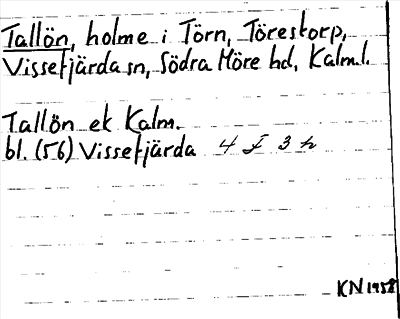 Tallön, holme i Törn, Törestorp,
Vissefjärda sn, Södra Möre hd, Kalm.l.
Tallön ek Kalm.
bl. (56) Vissefjärda 4 f 3 h
KN 1958